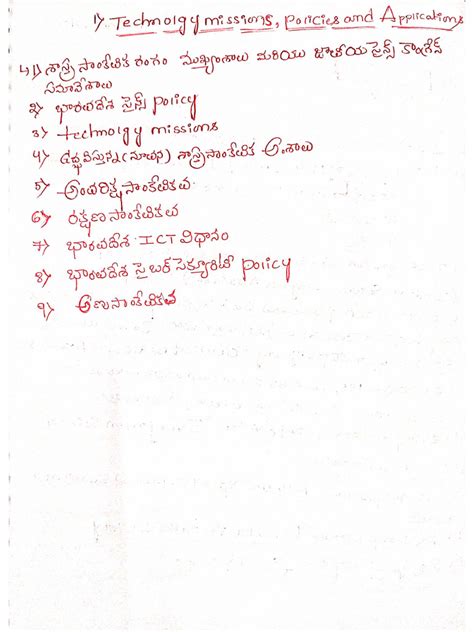 1> Technolgy missions, policies and Applications
1> శాస్త్ర సాంకేతిక రంగం ముఖ్యాంశాలు మరియు జాతీయ సైన్స్ కాంగ్రెస్
సమావేశాలు
2> భారతదేశ సైన్స్ policy
3> technolgy missions
4> (నూతన) శాస్త్రసాంకేతిక అంశాలు
5> అంతరిక్ష సాంకేతికత
6> రక్షణ సాంకేతికత
7> భారతదేశ ICT విధానం
8> భారతదేశ సైబర్ సెక్యూరిటీ policy
9> అణుసాంకేతికత